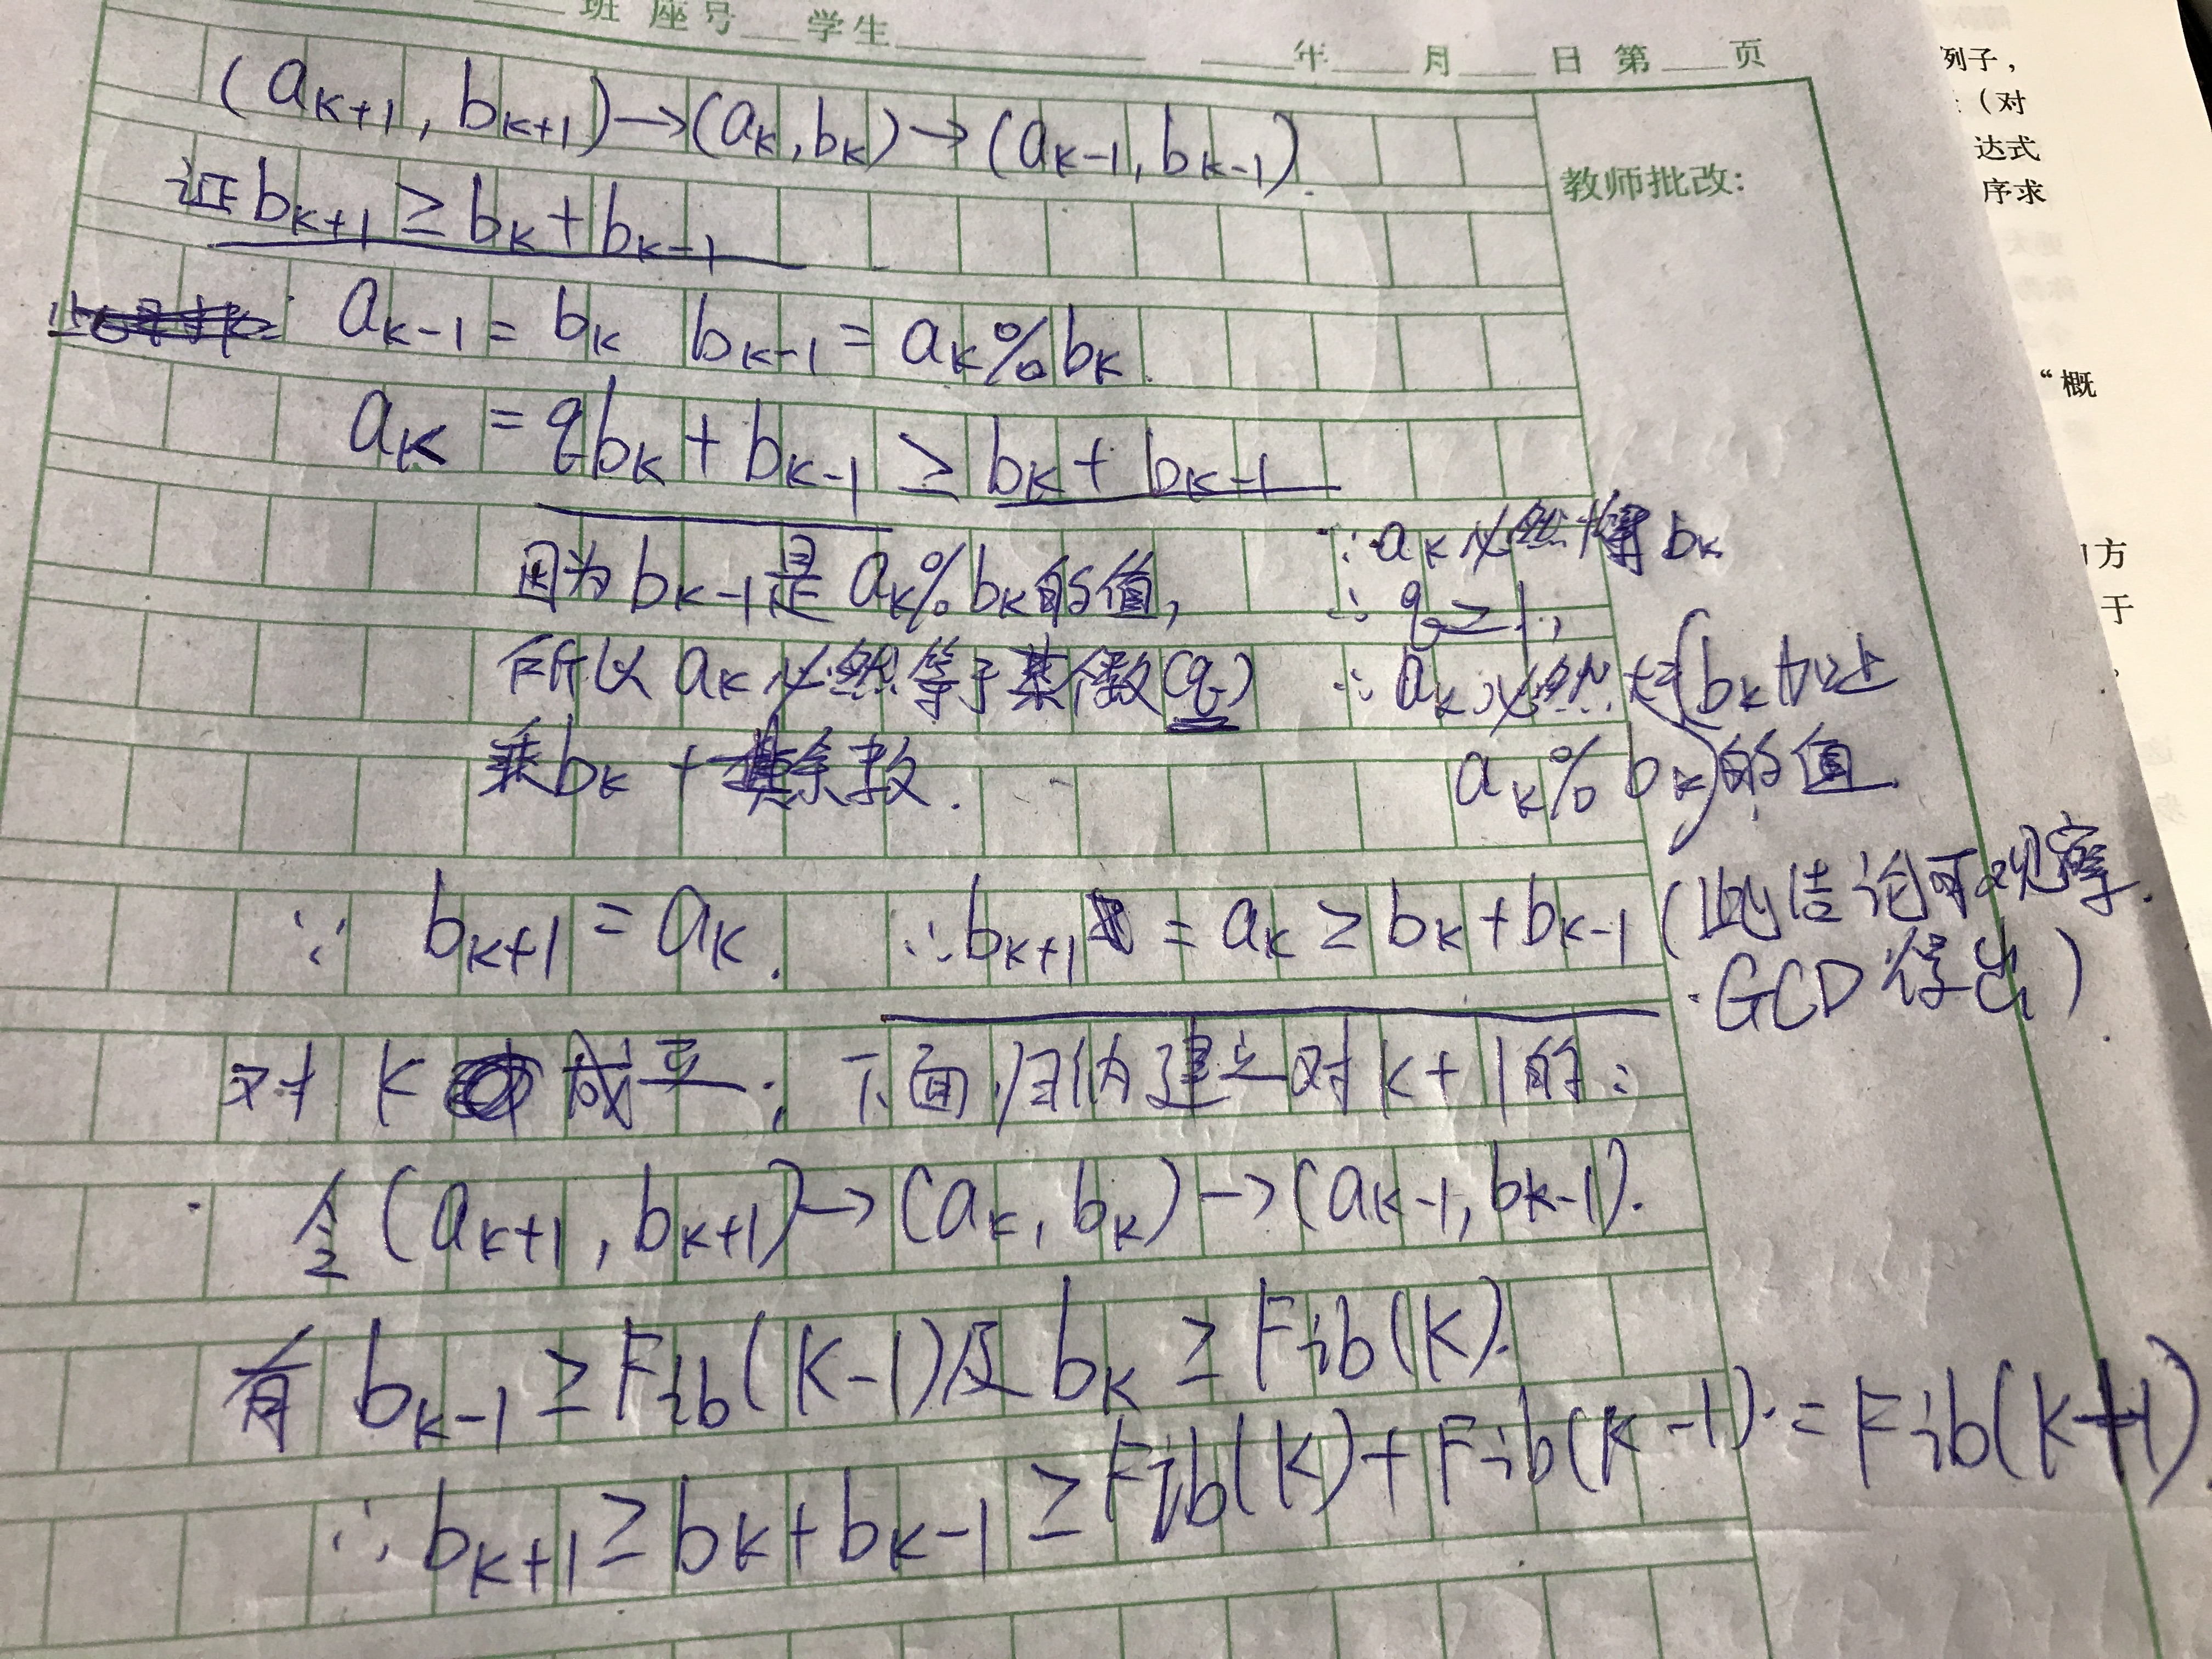 班 座号 学生
年 月 日 第 页
(a_{k+1}, b_{k+1})→(a_k, b_k)→(a_{k-1}, b_{k-1}).
教师批改:
证 b_{k+1} ≥ b_k + b_{k-1}
a_{k-1} = b_k b_{k-1} = a_k % b_k.
a_k = qb_k + b_{k-1} ≥ b_k + b_{k-1}
因为 b_{k-1} 是 a_k % b_k 的值,
所以 a_k 必然等于某个数(q)
乘 b_k + 其余数.
∵ a_k 必然 b_k
∴ q ≥ 1,
∴ a_k 必然大于(b_k 加上
a_k % b_k)的值.
∵ b_{k+1} = a_k. ∴ b_{k+1} = a_k ≥ b_k + b_{k-1} (此结论可观察
GCD得出)
对 k 成立; 下面归纳建立对 k+1 的:
令 (a_{k+1}, b_{k+1})→(a_k, b_k)→(a_{k-1}, b_{k-1}).
有 b_{k-1} ≥ Fib(k-1) 及 b_k ≥ Fib(k).
∴ b_{k+1} ≥ b_k + b_{k-1} ≥ Fib(k) + Fib(k-1) = Fib(k+1).
列子,
(对
达式
序求
“概
方
于